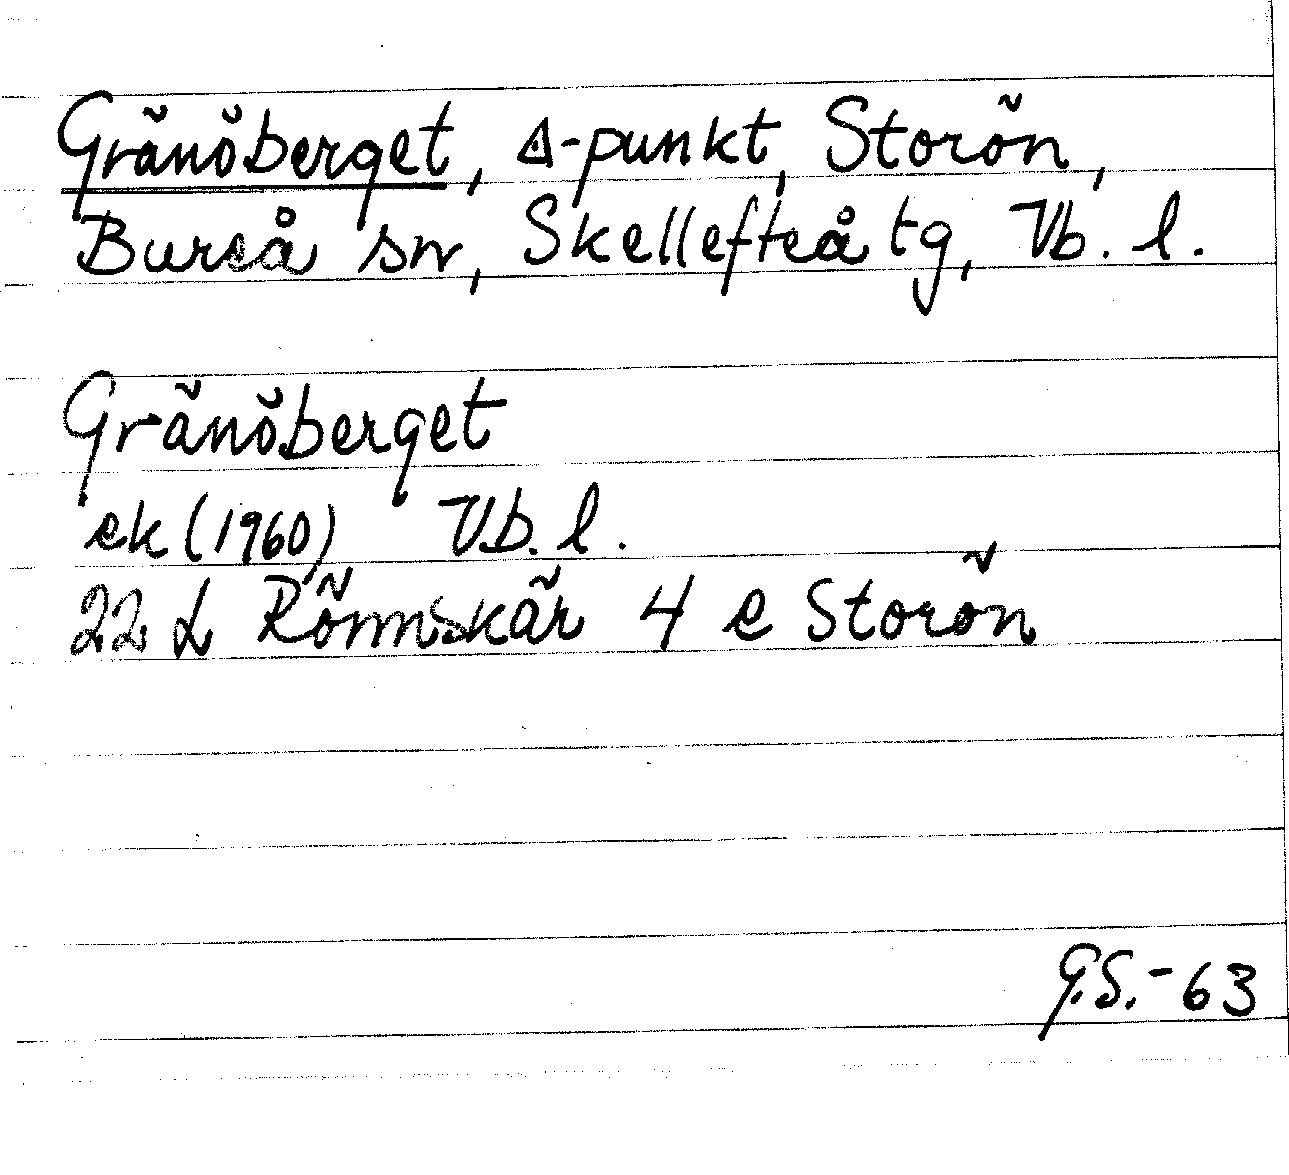 Gränöberget, ◬-punkt, Storön,
Bureå sn, Skellefteå tg, Vb. l.
Gränöberget
ek (1960) Vb. l.
22 L Rönnskär 4 e Storön
G.S.-63